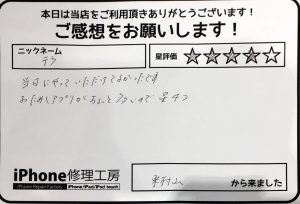 本日は当店をご利用頂きありがとうございます！
ご感想をお願いします！
ニックネーム
テラ
星評価
当日にやっていただけてよかったです
おためしアプリがちょっと 星4つ
iPhone修理工房
iPhone Repair Factory iPhone/iPad/iPod touch
東村山 から来ました